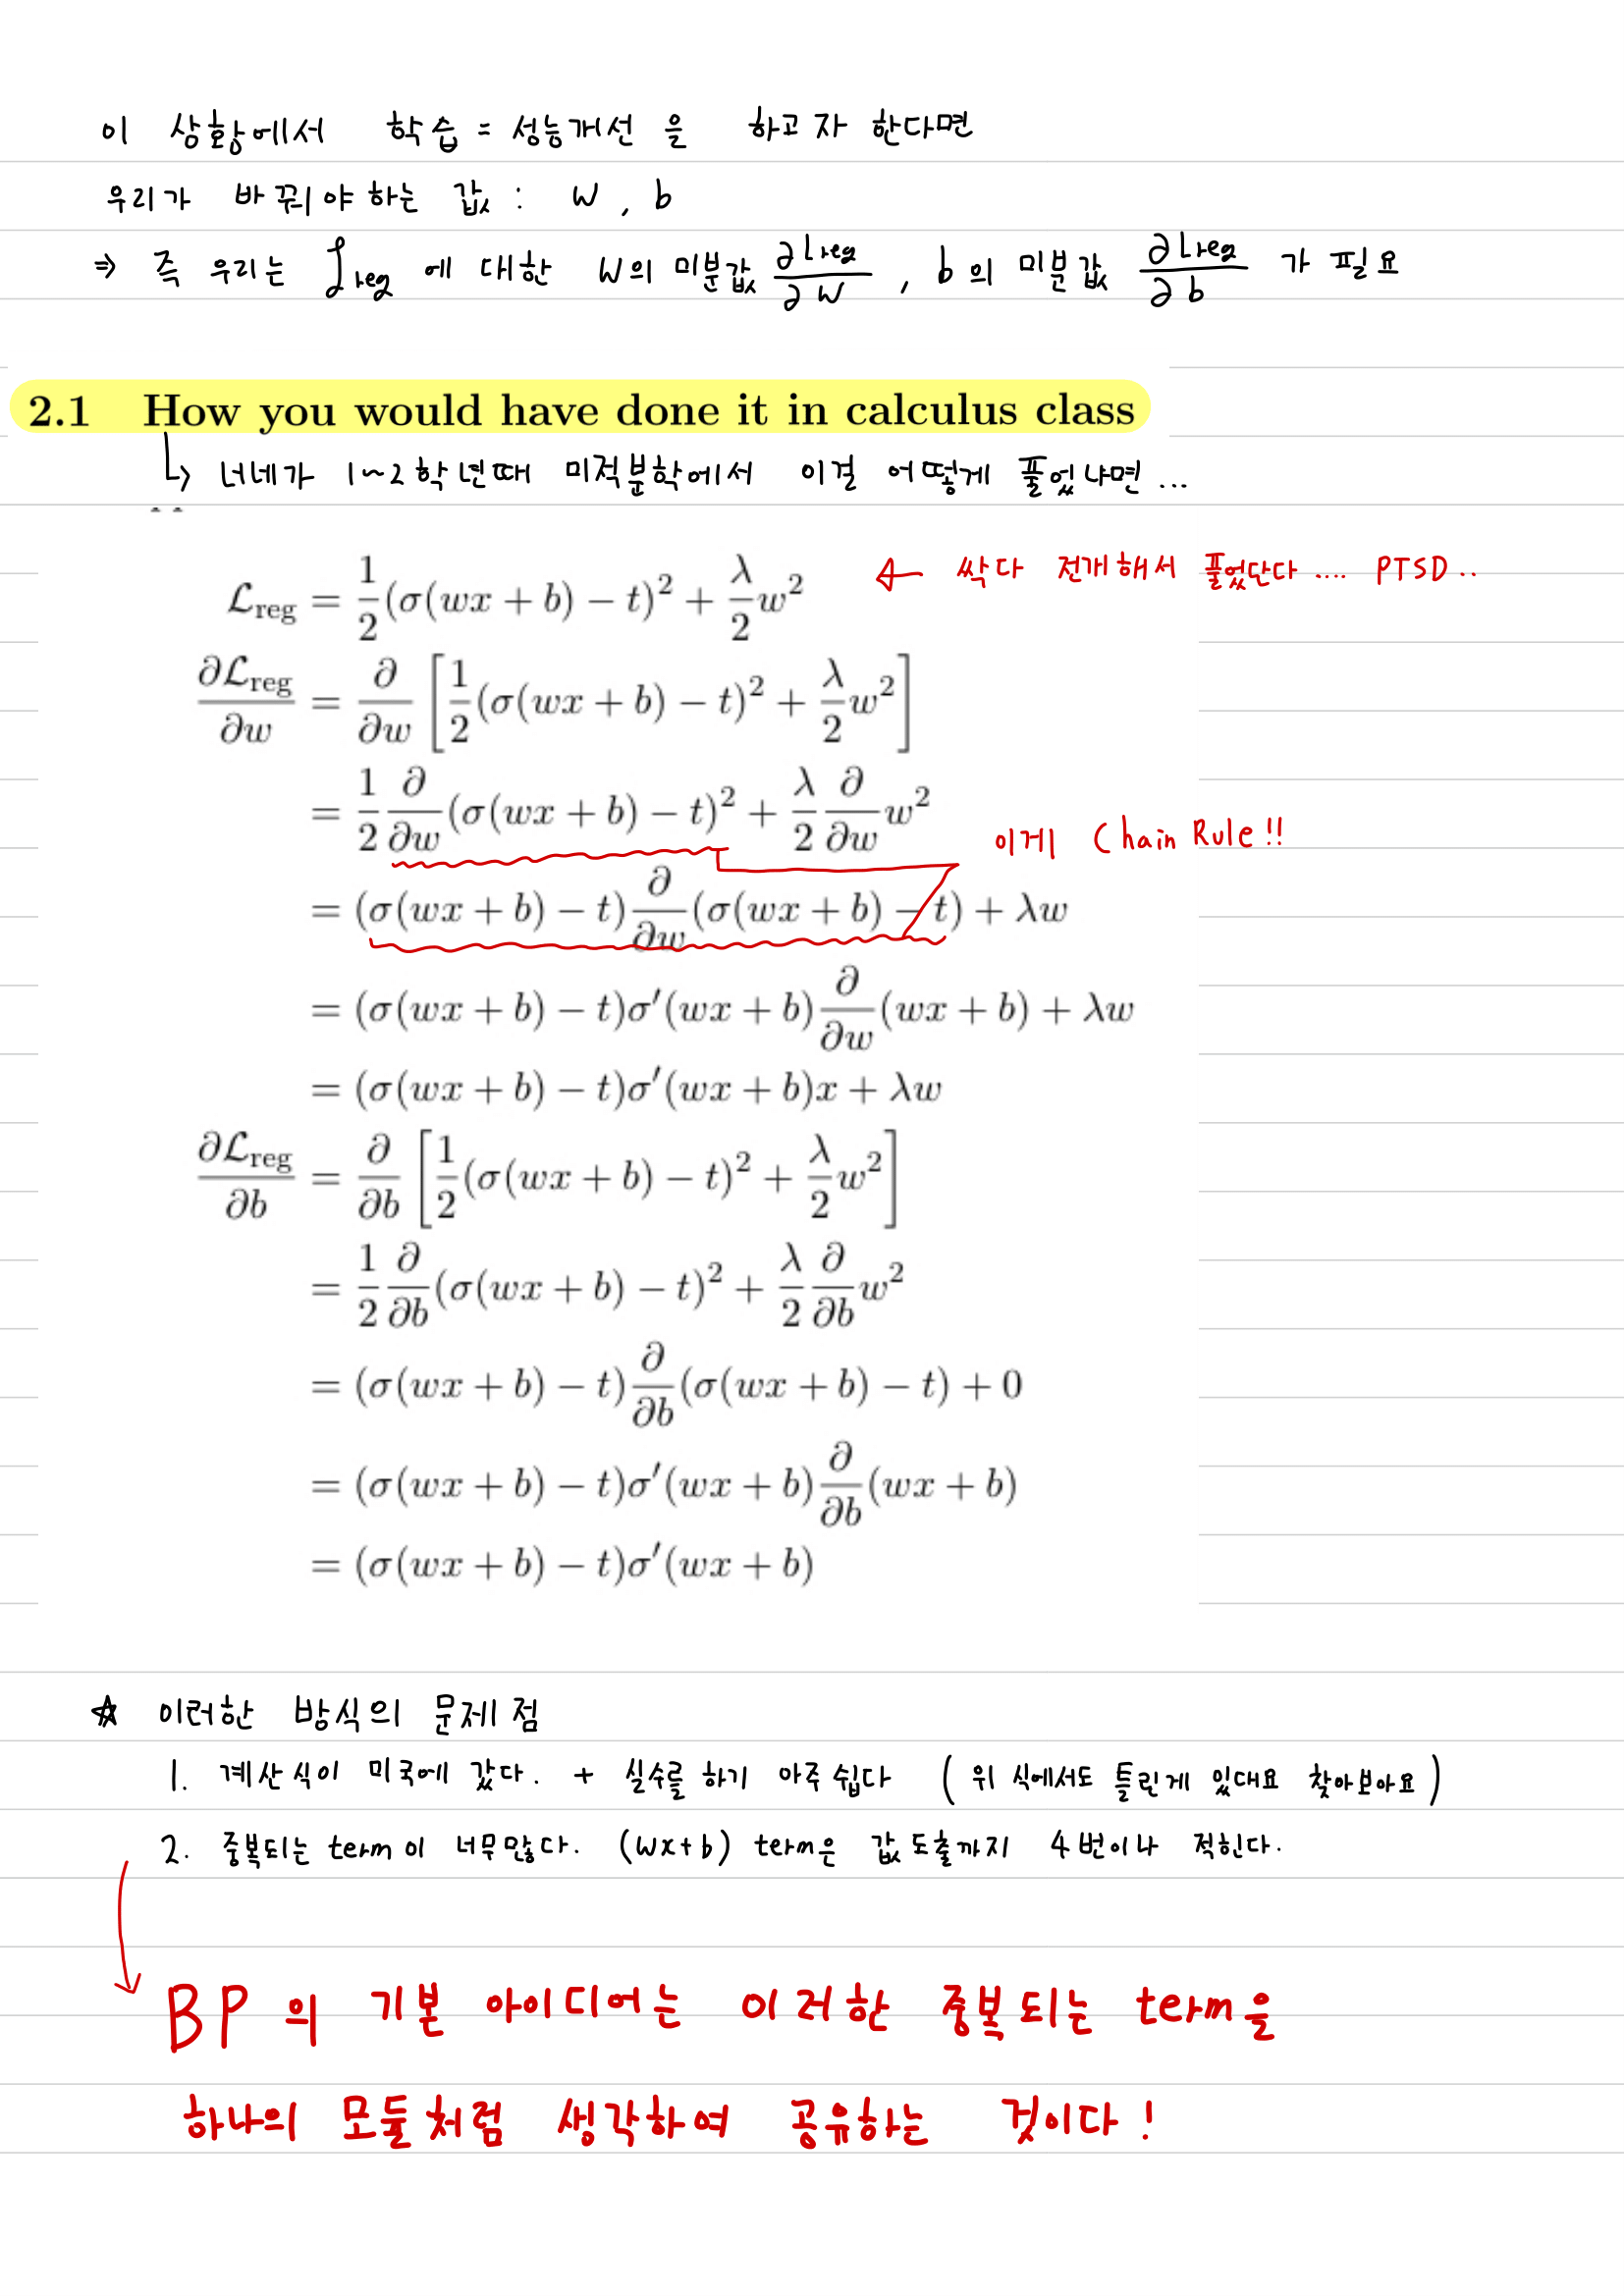 이 상황에서 학습 = 성능개선 을 하고자 한다면
우리가 바꿔야 하는 값 : w , b
⇒ 즉 우리는 ℒreg 에 대한 w의 미분값 ∂Lreg/∂w , b의 미분값 ∂Lreg/∂b 가 필요
2.1 How you would have done it in calculus class
↳ 너네가 1~2학년때 미적분학에서 이걸 어떻게 풀었냐면...
ℒreg = 1/2(σ(wx + b) − t)² + λ/2 w² ← 싹다 전개해서 풀었단다.... PTSD..
∂ℒreg/∂w = ∂/∂w [1/2(σ(wx + b) − t)² + λ/2 w²]
= 1/2 ∂/∂w (σ(wx + b) − t)² + λ/2 ∂/∂w w²
이게 Chain Rule!!
= (σ(wx + b) − t) ∂/∂w (σ(wx + b) − t) + λw
= (σ(wx + b) − t)σ′(wx + b) ∂/∂w (wx + b) + λw
= (σ(wx + b) − t)σ′(wx + b)x + λw
∂ℒreg/∂b = ∂/∂b [1/2(σ(wx + b) − t)² + λ/2 w²]
= 1/2 ∂/∂b (σ(wx + b) − t)² + λ/2 ∂/∂b w²
= (σ(wx + b) − t) ∂/∂b (σ(wx + b) − t) + 0
= (σ(wx + b) − t)σ′(wx + b) ∂/∂b (wx + b)
= (σ(wx + b) − t)σ′(wx + b)
☆ 이러한 방식의 문제점
1. 계산식이 미국에 갔다. + 실수를 하기 아주 쉽다 (위 식에서도 틀린게 있대요 찾아보아요)
2. 중복되는 term이 너무많다. (wx+b) term은 값 도출까지 4번이나 적힌다.
BP의 기본 아이디어는 이러한 중복되는 term을
하나의 모듈처럼 생각하여 공유하는 것이다!